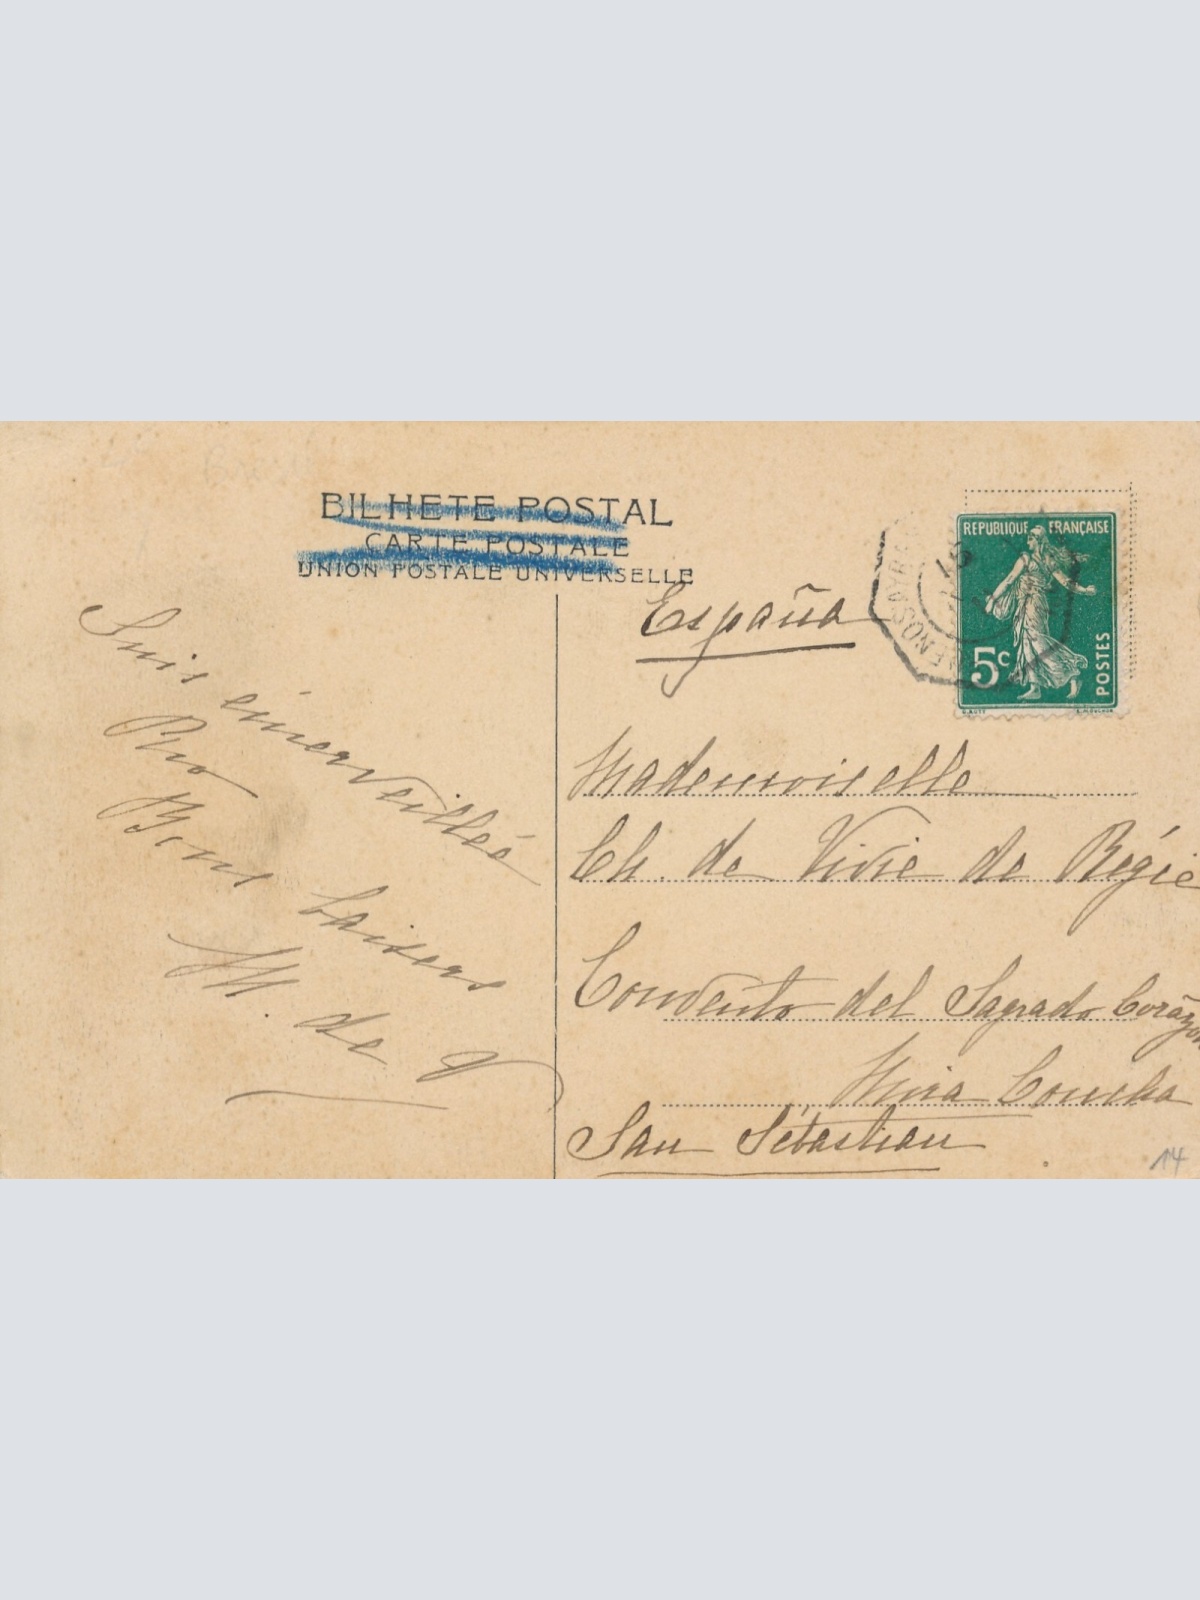 BILHETE POSTAL
CARTE POSTALE
UNION POSTALE UNIVERSELLE
España
REPUBLIQUE FRANÇAISE
5c
POSTES
Suis émerveillée
Rio
Bons baisers
M. de V
Mademoiselle
Ch. de Vivie de Régie
Convento del Sagrado Corazon
Mira Concha
San Sébastian
14